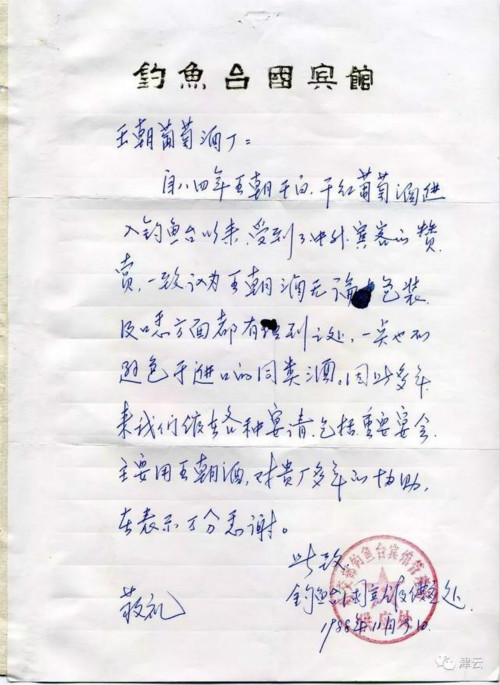 钓魚台國宾館
王朝葡萄酒厂：
自八四年王朝干白、干红葡萄酒进
入钓鱼台以来，受到了中外宾客的赞
赏，一致认为王朝酒无论包装
及口感方面都有独到之处，一点也不
逊色于进口的同类酒。因此多年
来我们馆在各种宴请，包括重要宴会
主要用王朝酒，对贵厂多年的协助，
在表示万分感谢。
此致
敬礼
钓鱼台国宾馆供应处
1988年11月
钓鱼台宾馆
供应处
津云